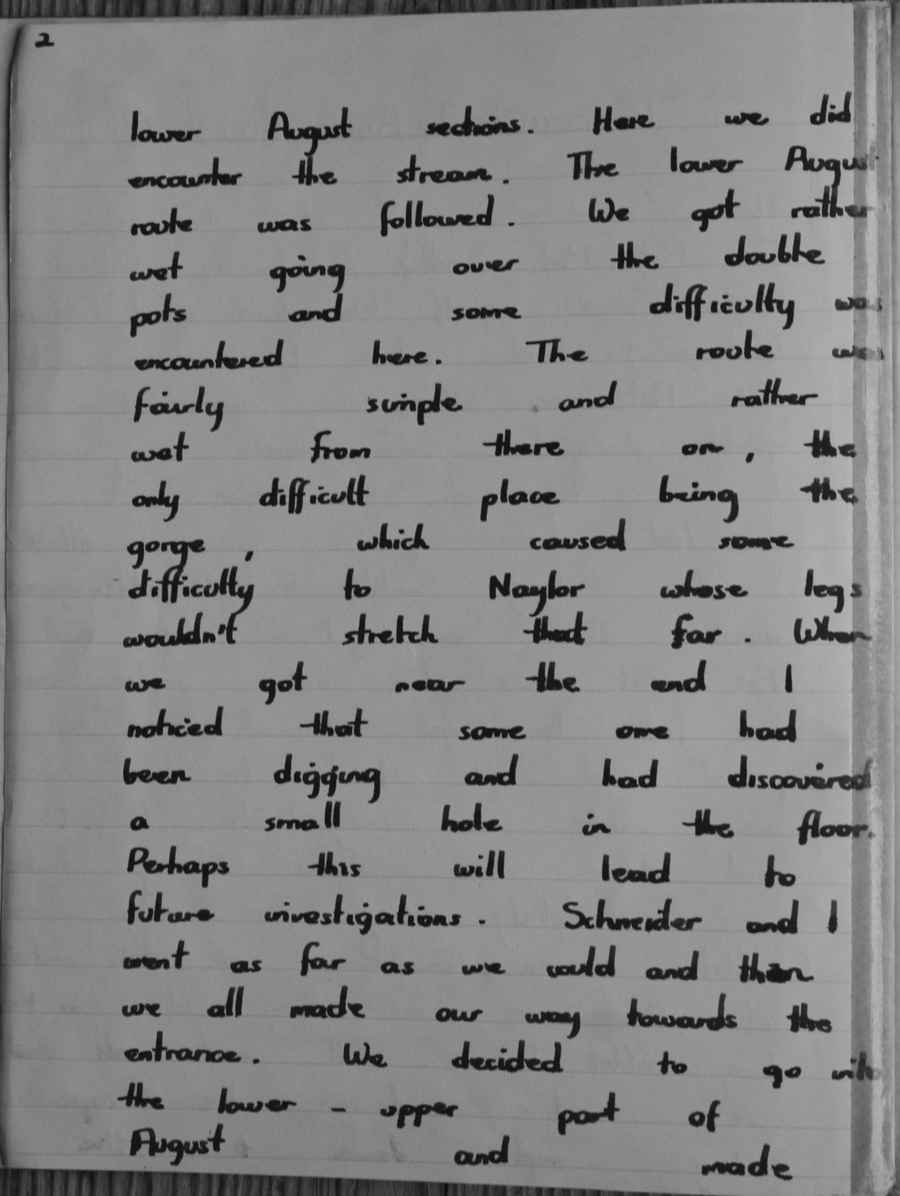 2
lower August sections. Here we did
encounter the stream. The lower August
route was followed. We got rather
wet going over the double
pots and some difficulty was
encountered here. The route was
fairly simple and rather
wet from there on, the
only difficult place being the
gorge, which caused some
difficulty to Naylor whose legs
wouldn't stretch that far. When
we got near the end I
noticed that some one had
been digging and had discovered
a small hole in the floor.
Perhaps this will lead to
future investigations. Schneider and I
went as far as we could and then
we all made our way towards the
entrance. We decided to go into
the lower - upper part of
August and made